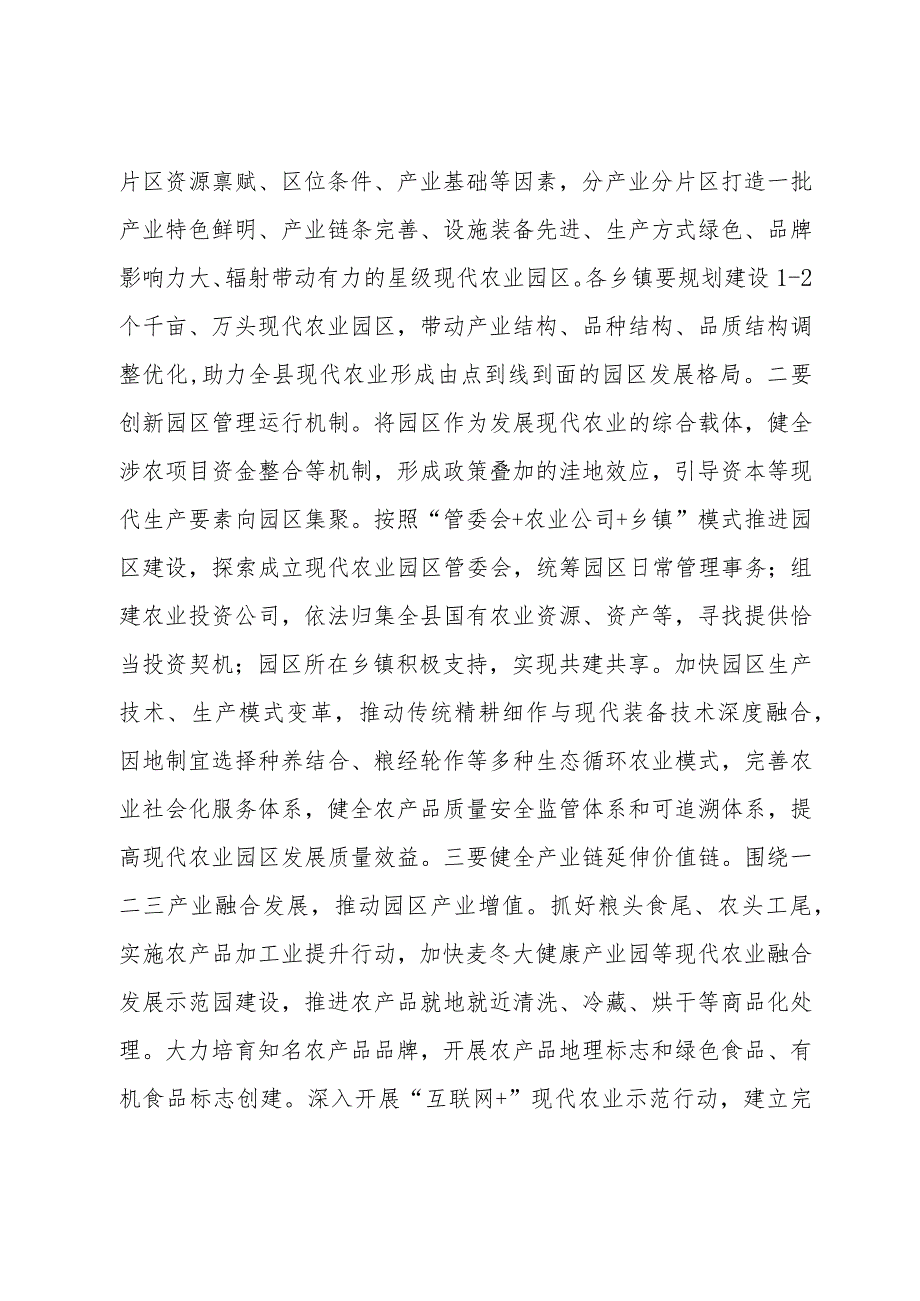 片区资源禀赋、区位条件、产业基础等因素，分产业分片区打造一批
产业特色鲜明、产业链条完善、设施装备先进、生产方式绿色、品牌
影响力大、辐射带动有力的星级现代农业园区。各乡镇要规划建设 1-2
个千亩、万头现代农业园区，带动产业结构、品种结构、品质结构调
整优化,助力全县现代农业形成由点到线到面的园区发展格局。二要
创新园区管理运行机制。将园区作为发展现代农业的综合载体，健全
涉农项目资金整合等机制，形成政策叠加的洼地效应，引导资本等现
代生产要素向园区集聚。按照“管委会+农业公司+乡镇”模式推进园
区建设，探索成立现代农业园区管委会，统筹园区日常管理事务；组
建农业投资公司，依法归集全县国有农业资源、资产等，寻找提供恰
当投资契机；园区所在乡镇积极支持，实现共建共享。加快园区生产
技术、生产模式变革，推动传统精耕细作与现代装备技术深度融合，
因地制宜选择种养结合、粮经轮作等多种生态循环农业模式，完善农
业社会化服务体系，健全农产品质量安全监管体系和可追溯体系，提
高现代农业园区发展质量效益。三要健全产业链延伸价值链。围绕一
二三产业融合发展，推动园区产业增值。抓好粮头食尾、农头工尾，
实施农产品加工业提升行动，加快麦冬大健康产业园等现代农业融合
发展示范园建设，推进农产品就地就近清洗、冷藏、烘干等商品化处
理。大力培育知名农产品品牌，开展农产品地理标志和绿色食品、有
机食品标志创建。深入开展“互联网+”现代农业示范行动，建立完